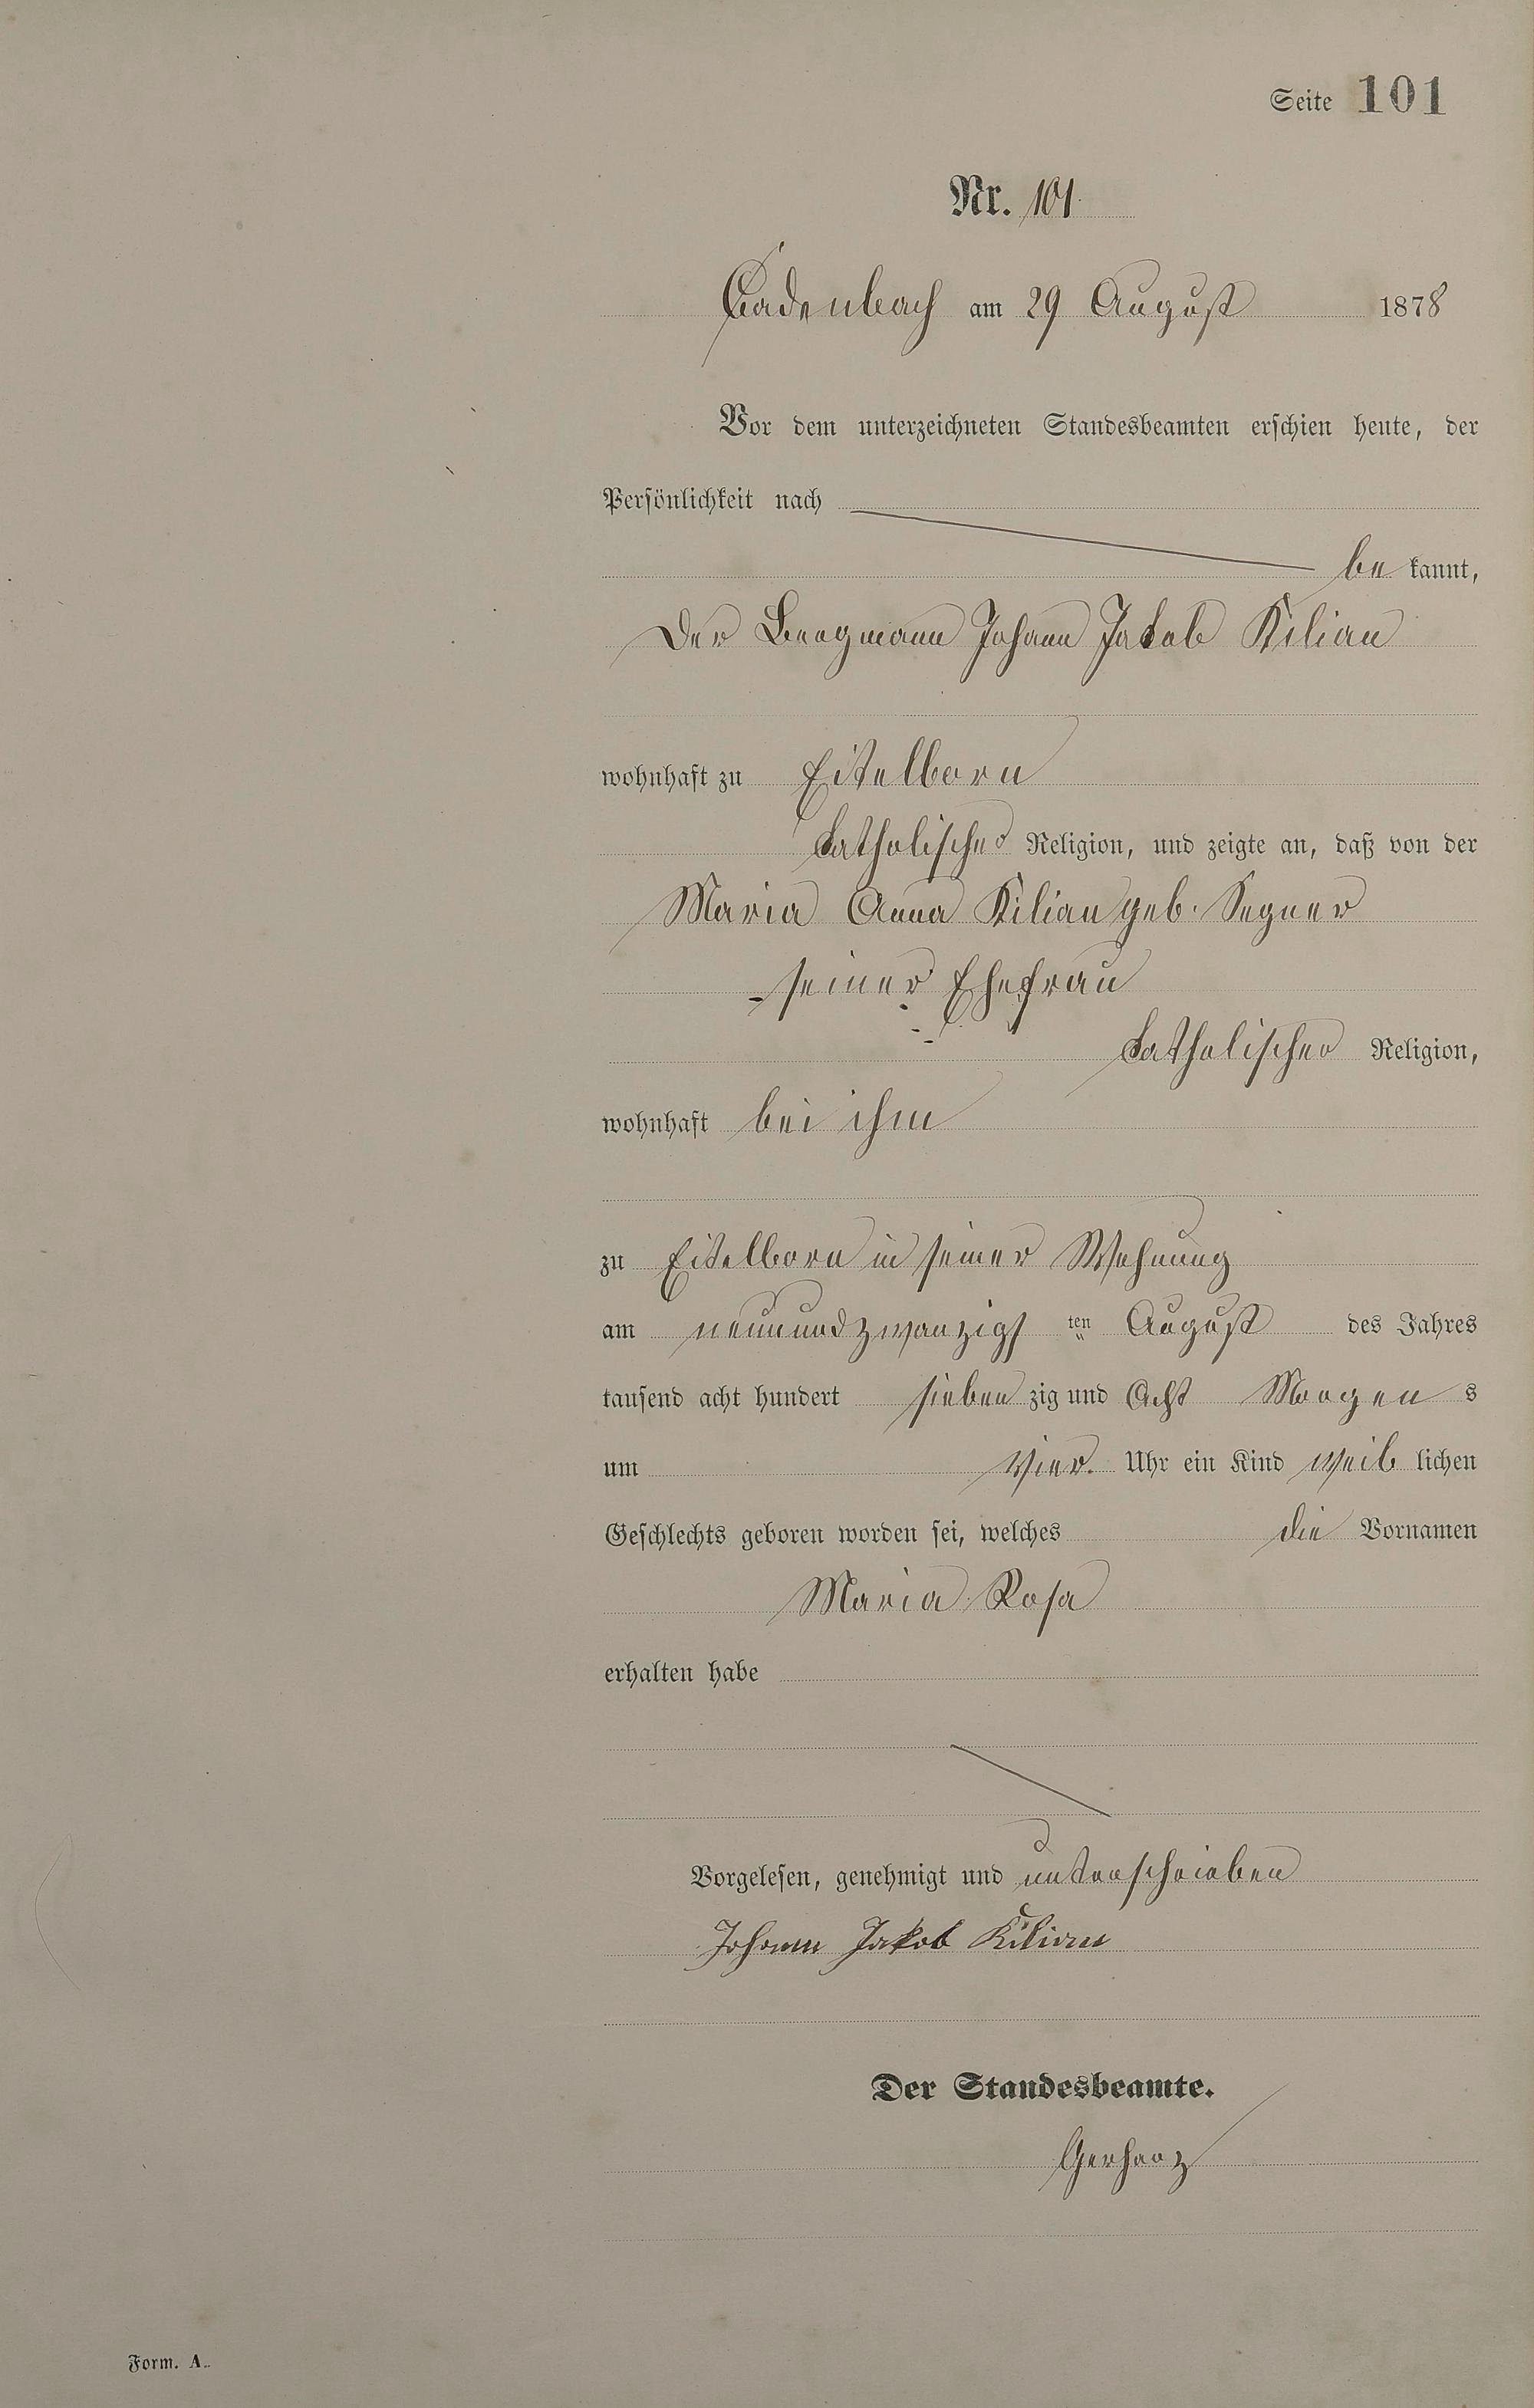 Seite 101
Nr. 101.
Cadenbach am 29 August 1878
Vor dem unterzeichneten Standesbeamten erschien heute, der
Persönlichkeit nach
be kannt,
der Bergmann Johann Jakob Kilian
wohnhaft zu Eitelborn
katholischer Religion, und zeigte an, daß von der
Maria Anna Kilian geb. Segner
seiner Ehefrau
katholischer Religion,
wohnhaft bei ihm
zu Eitelborn in seiner Wohnung
am neunundzwanzigs ten August des Jahres
tausend acht hundert sieben zig und Acht Morgen s
um Vier. Uhr ein Kind weib lichen
Geschlechts geboren worden sei, welches die Vornamen
Maria Rosa
erhalten habe
Vorgelesen, genehmigt und unterschrieben
Johann Jakob Kilian
Der Standesbeamte.
Gerharz
Form. A.